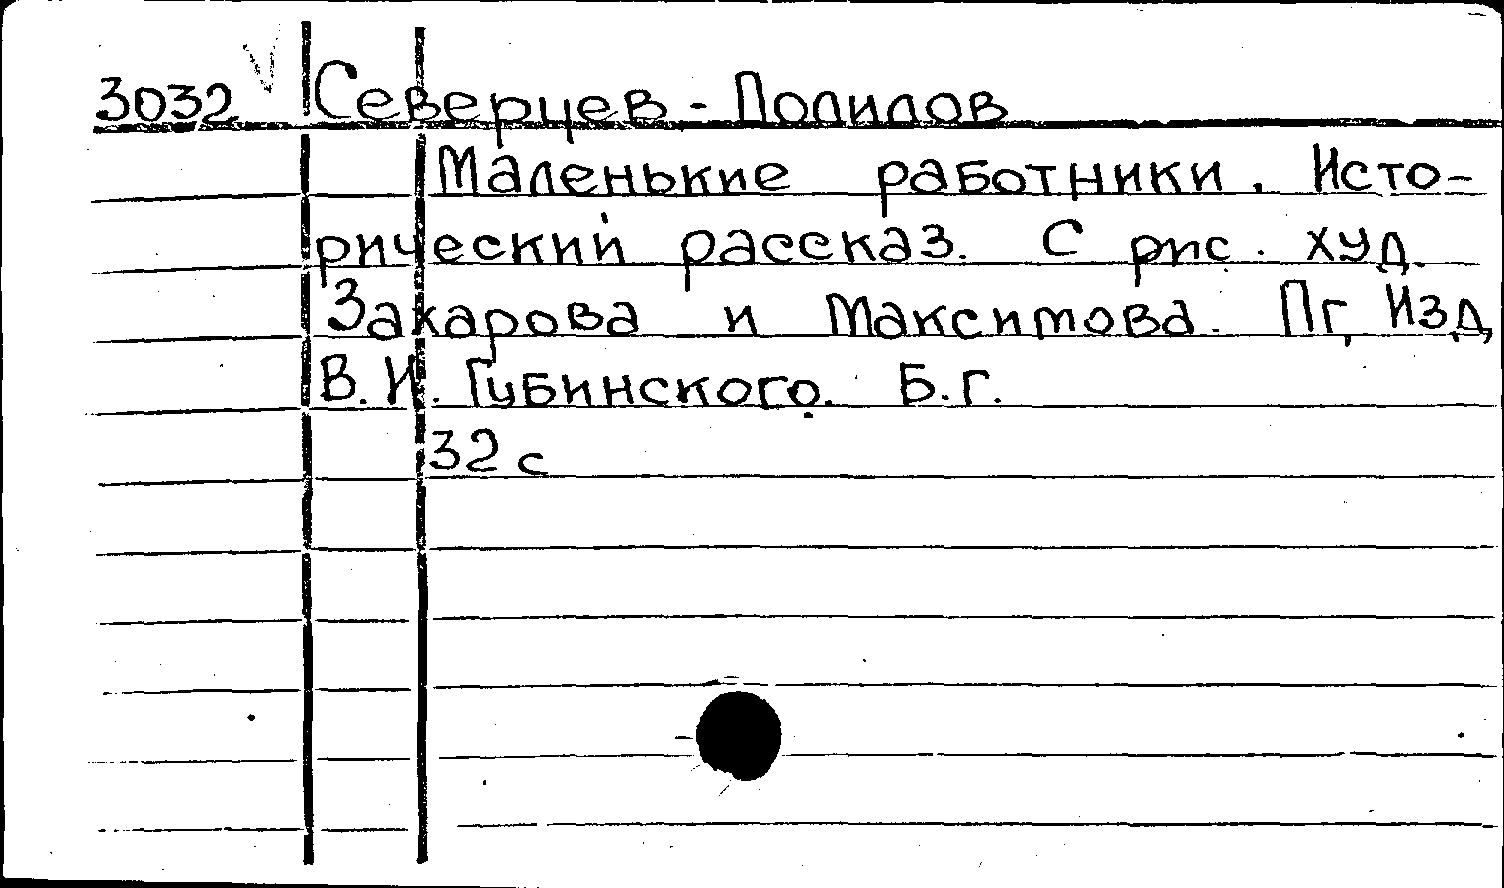 3032 Северцев - Полилов
Маленькие работники. Исто-
рический рассказ. С рис. худ.
Захарова и Максимова. Пг, Изд,
В.И. Губинского. Б.г.
32 с